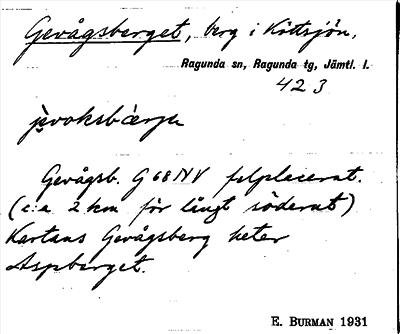 Gevågsberget, berg i Köttsjön.
Ragunda sn, Ragunda tg, Jämtl. l.
423
Gevågsb. G 68 NV felplacerat.
(c:a 2 km för långt söderut)
Kartans Gevågsberg heter
Aspberget.
E. BURMAN 1931